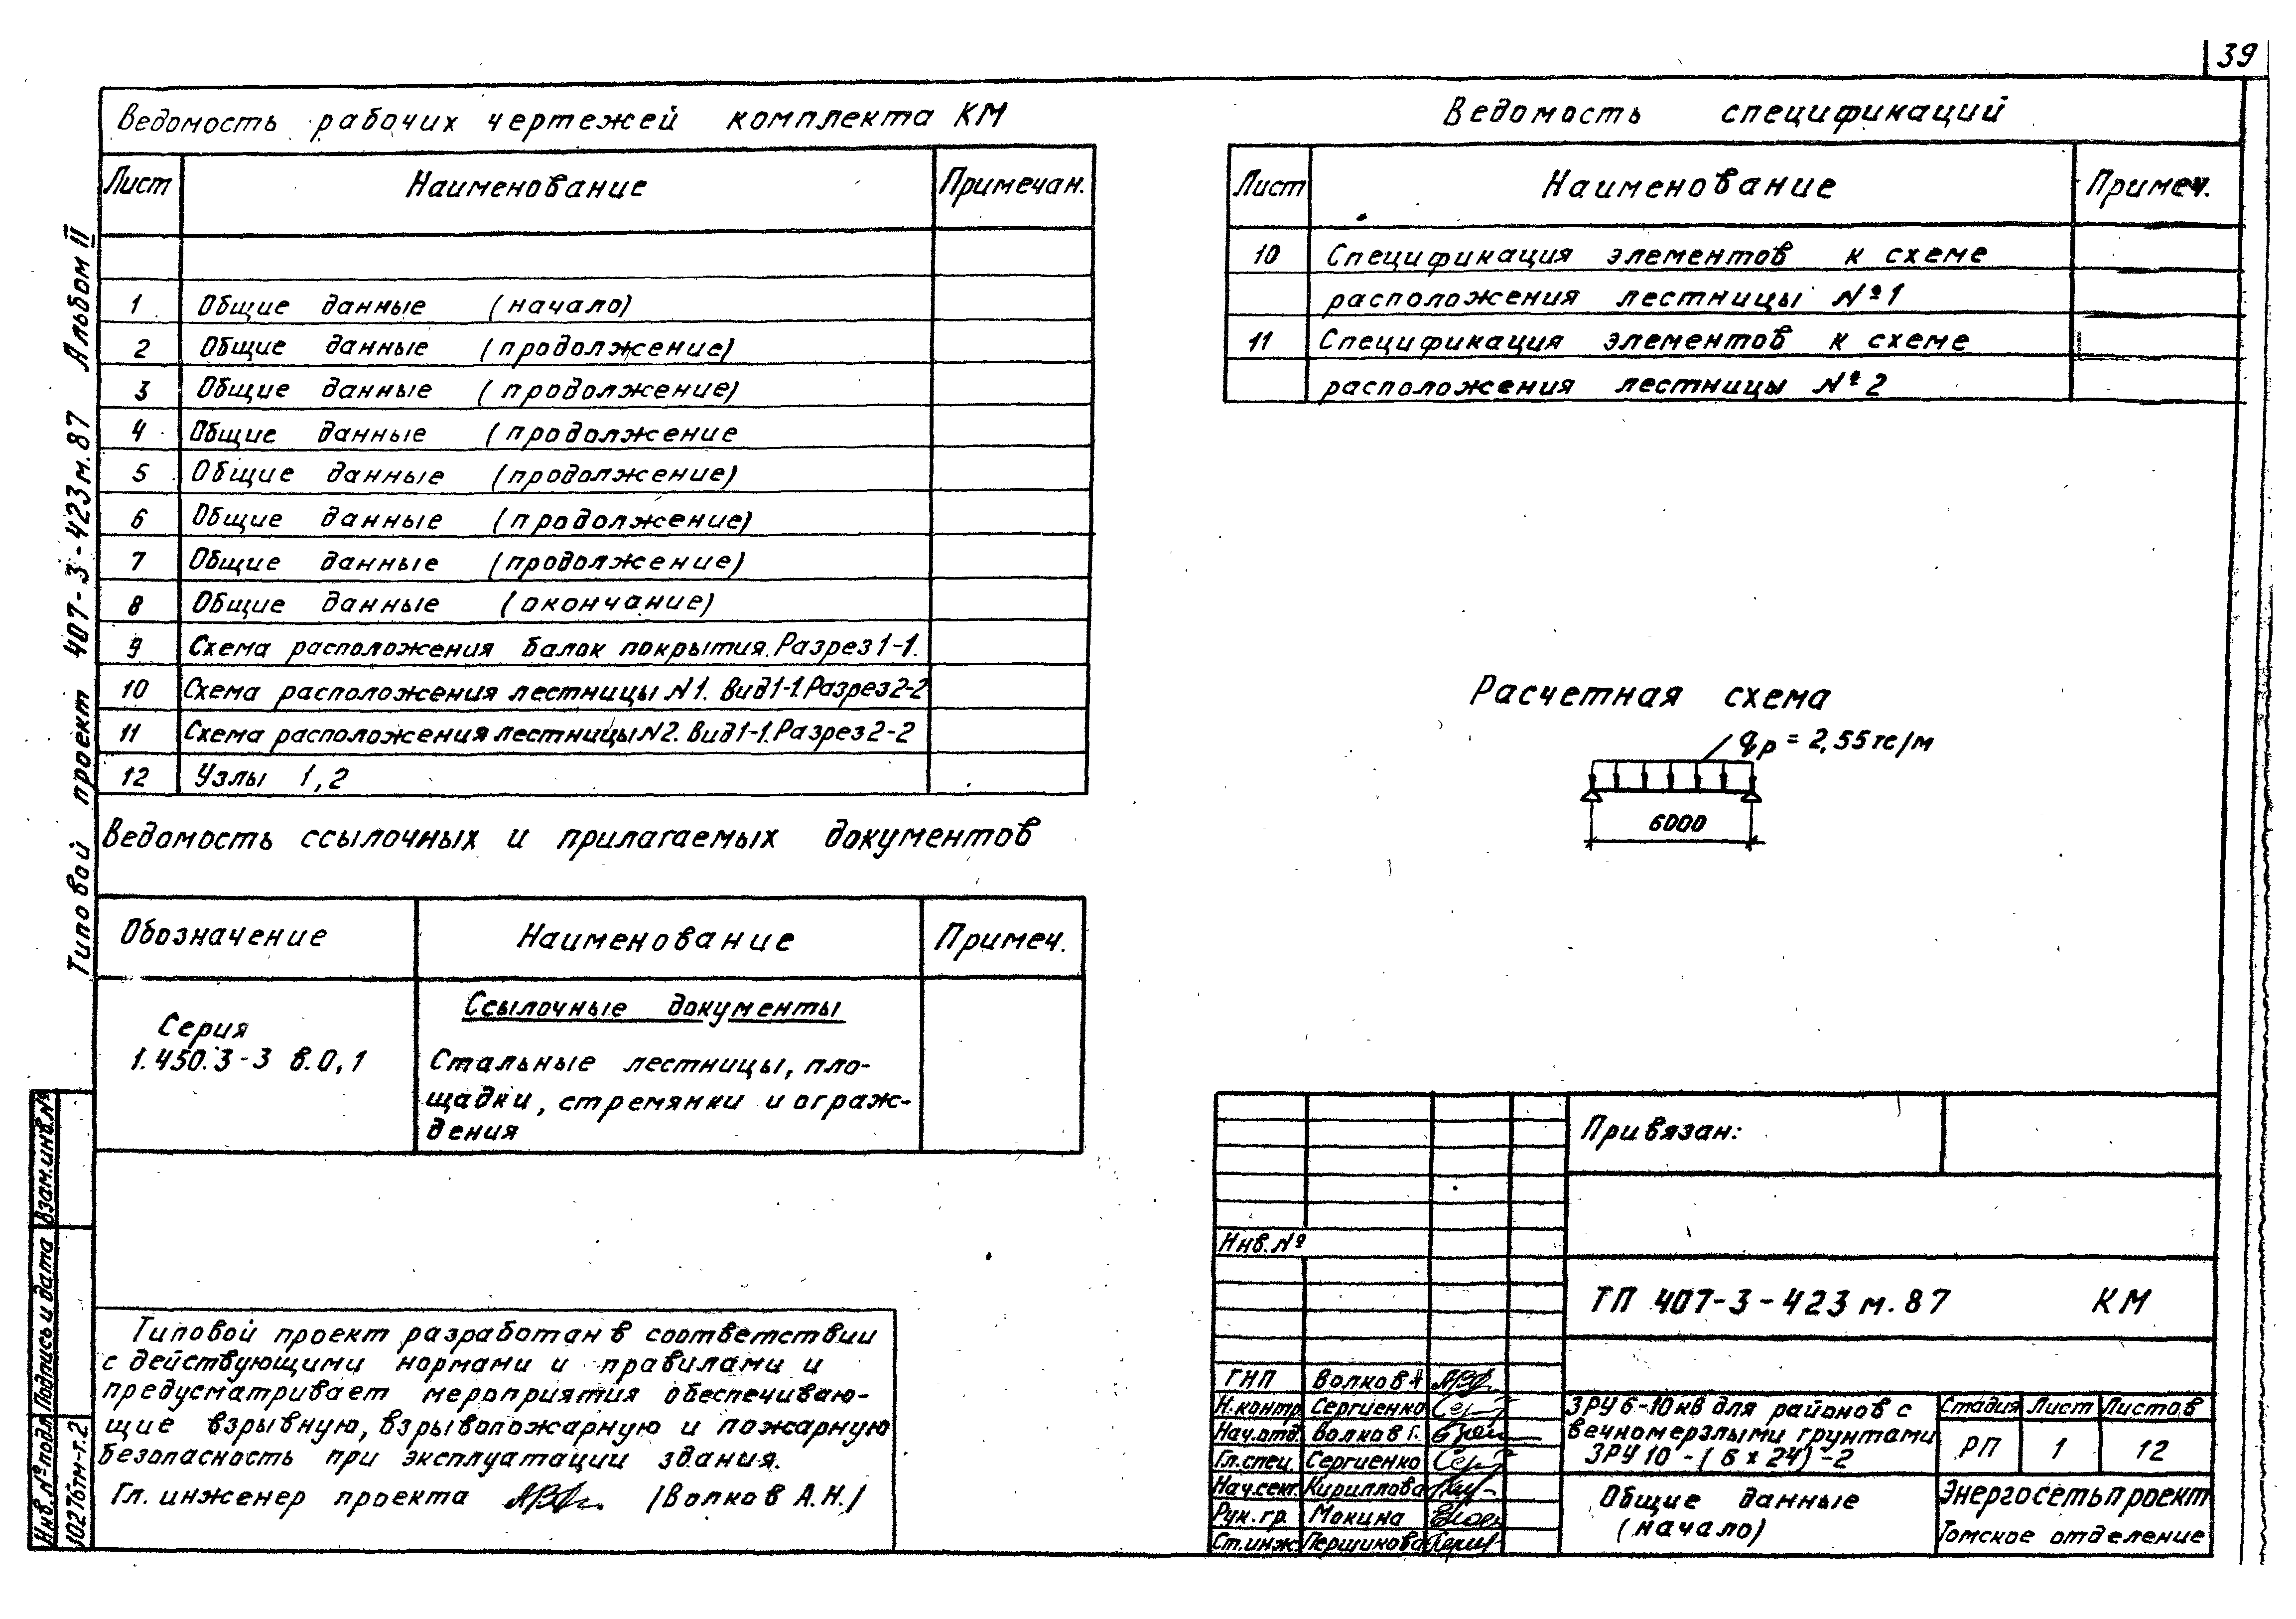 39
Ведомость рабочих чертежей комплекта КМ
Лист Наименование Примечан.
1 Общие данные (начало)
2 Общие данные (продолжение)
3 Общие данные (продолжение)
4 Общие данные (продолжение
5 Общие данные (продолжение)
6 Общие данные (продолжение)
7 Общие данные (продолжение)
8 Общие данные (окончание)
9 Схема расположения балок покрытия. Разрез 1-1.
10 Схема расположения лестницы N1. Вид 1-1. Разрез 2-2
11 Схема расположения лестницы N2. Вид 1-1. Разрез 2-2
12 Узлы 1,2
Ведомость ссылочных и прилагаемых документов
Обозначение Наименование Примеч.
Ссылочные документы
Серия
1.450.3-3 в.0,1 Стальные лестницы, пло-
щадки, стремянки и ограж-
дения
Типовой проект разработан в соответствии
с действующими нормами и правилами и
предусматривает мероприятия обеспечиваю-
щие взрывную, взрывопожарную и пожарную
безопасность при эксплуатации здания.
Гл. инженер проекта /Волков А.Н./
Ведомость спецификаций
Лист Наименование Примеч.
10 Спецификация элементов к схеме
расположения лестницы №1
11 Спецификация элементов к схеме
расположения лестницы №2
Расчетная схема
qр = 2,55 тс/м
6000
Привязан:
Инв. №
ТП 407-3-423 м.87 КМ
ГИП Волков А
Н.контр Сергиенко
Нач.отд. Волков Г.
Гл.спец. Сергиенко
Нач.сект. Кириллова
Рук.гр. Мокина
Ст.инж. Першикова
ЗРУ 6-10 кв для районов с
вечномерзлыми грунтами
ЗРУ 10-(6х24)-2
Стадия Лист Листов
РП 1 12
Общие данные
(начало)
Энергосетьпроект
Томское отделение
Типовой проект 407-3-423 м.87 Альбом II
Инв. № подл. Подпись и дата Взам.инв.№
10276тм-т.2